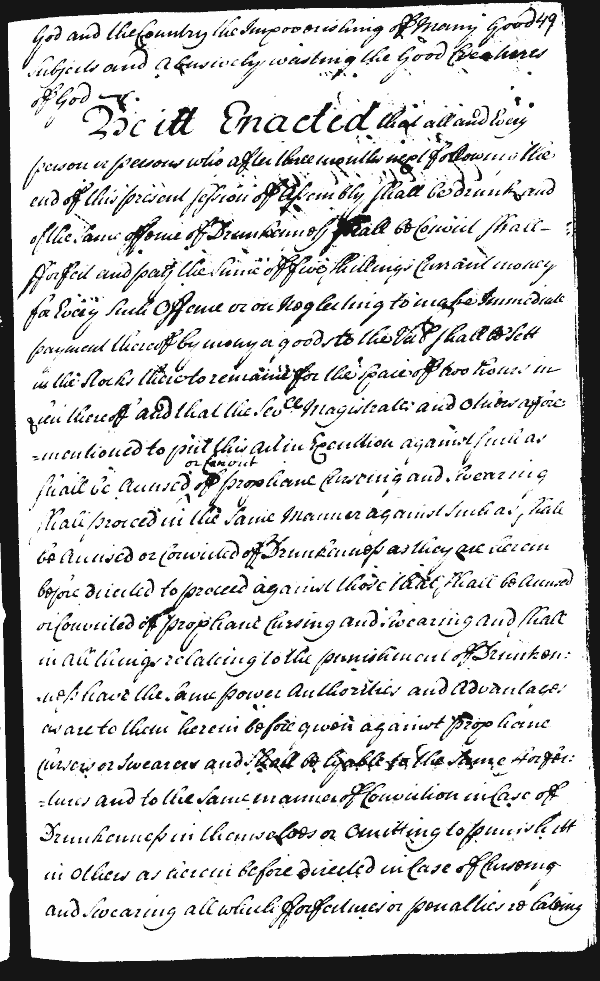 God and the Country the Impoverishing off Many Good 49
subjects and abusively wasting the Good Creatures
off God
Be itt Enacted that all and Every
person or persons who after three months next following the
end off this present session off Assembly shall be drunk and
of the same offence off Drunkenness shall be Convict shall
fforfeit and pay the sume off five shillings Currant money
for Every such Offence or on Neglecting to make Immediate
payment thereoff by mony or goods to the Vallue shall be sett
in the stocks there to remaine for the space off two houres in
lieu thereoff and that the Sevll Magistrates and Others afore
=mentioned to putt this act in Execution against such as
or Convict
shall be accused off prophane Curseing and swearing
shall proceed in the same Manner against such as shall
be accused or Convicted off Drunkenness as they are herein
before directed to proceed against those that shall be accused
or Convicted off prophane Cursing and swearing and shall
in all things relateing to the punishment off Drunken=
ness have the same power Authorities and Advantages
as are to them herein before given against prophane
cursers or swearers and shall be lyable to the same fforfei=
=tures and to the same manner off Conviction in Case off
Drunkenness in themselves or omitting to punish itt
in others as herein before directed in Case off Curseing
and swearing all which fforfeitures or penalties relateing